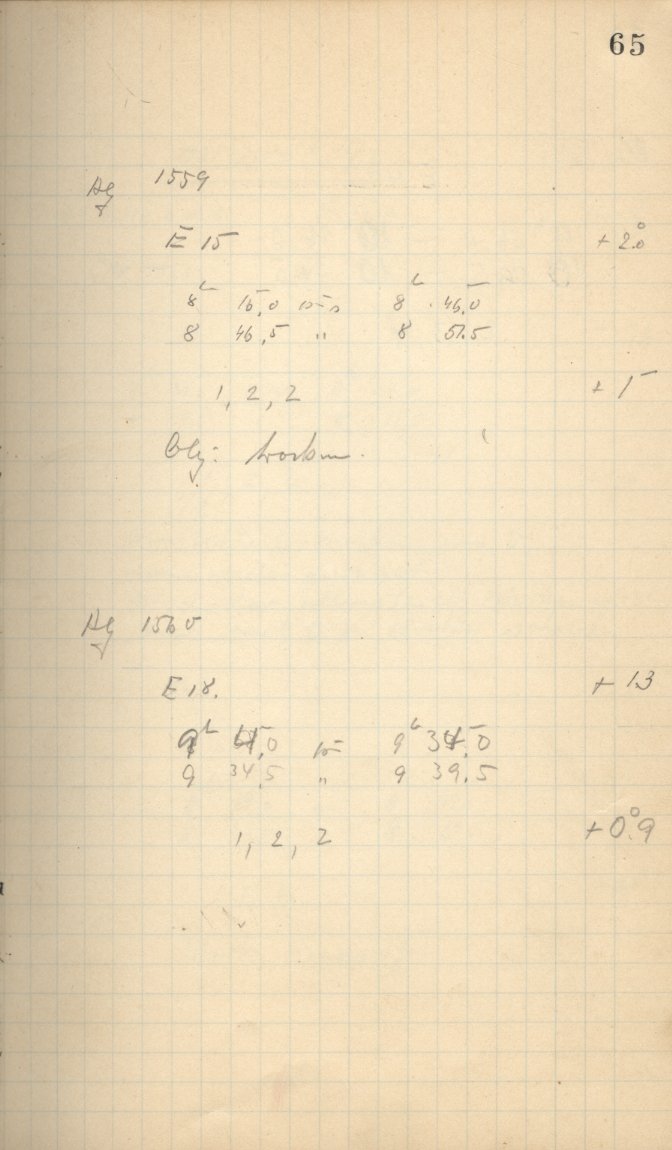 65
Ag 1559
E 15 +2.°0
8h 15,0 bis 8h 46,0
8 46,5 " 8 51.5
1, 2, 2 + 1
Obj: trocken.
Ag 1560
E 18. + 1.3
9h ,0 bis 9h 34,0
9 34,5 " 9 39.5
1, 2, 2 +0.°9